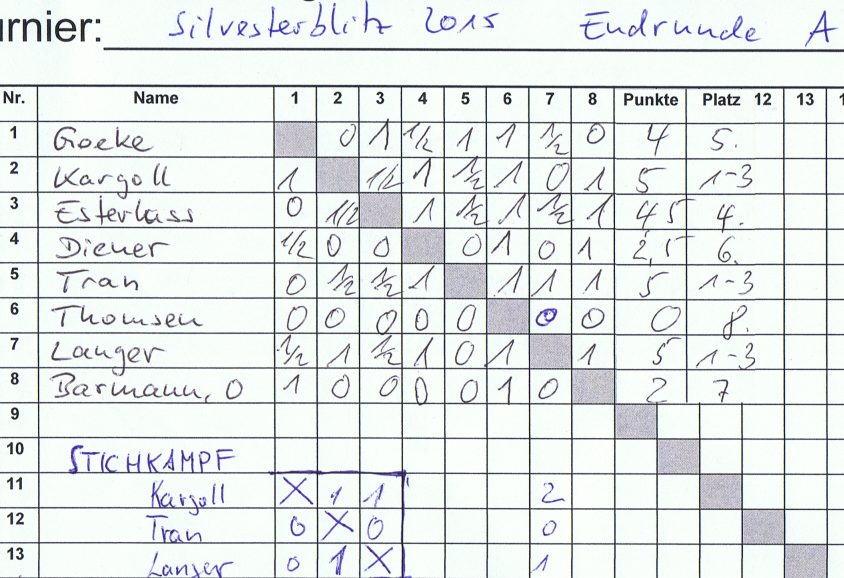 urnier: Silvesterblitz 2015 Endrunde A
Nr. Name 1 2 3 4 5 6 7 8 Punkte Platz 12 13 1
1 Goeke 0 1 1/2 1 1 1/2 0 4 5.
2 Kargoll 1 1/2 1 1/2 1 0 1 5 1-3
3 Esterluss 0 1/2 1 1/2 1 1/2 1 4 5 4.
4 Diener 1/2 0 0 0 1 0 1 2,5 6.
5 Tran 0 1/2 1/2 1 1 1 1 5 1-3
6 Thomsen 0 0 0 0 0 0 0 0 8.
7 Langer 1/2 1 1/2 1 0 1 1 5 1-3
8 Barmann, O 1 0 0 0 0 1 0 2 7
9
10 STICHKAMPF
11 Kargoll X 1 1 2
12 Tran 0 X 0 0
13 Langer 0 1 X 1